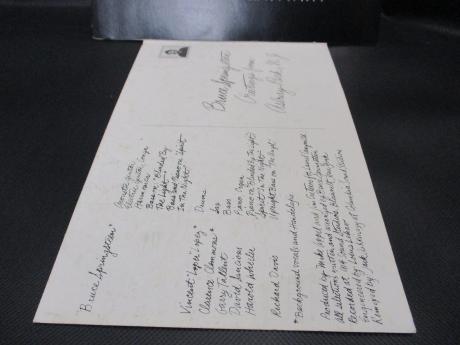 Bruce Springsteen
Greetings from
Asbury Park, N.J.
Bruce Springsteen
Acoustic Guitar,
Electric Guitar, Congas
Harmonica
Bass on "Blinded By
The Light"
Bass and Piano on "Spirit
In The Night"
Vincent "Loper" Lopez* Drums
Clarence Clemmons* Sax
Garry Tallent Bass
David Sancious Piano, Organ
Harold Wheeler Piano on "Blinded By the Light"
Spirit in the Night"
Richard Davis Upright Bass on "The Angel"
*Background vocals and Handclaps
Produced by Mike Appel and Jim Cretecos for Laurel Canyon Ltd
All selections written and arranged by Bruce Springsteen
Recorded at 914 Sound Studios, Blauvelt New York
Engineered by Louis Lahav
Remixed by Jack